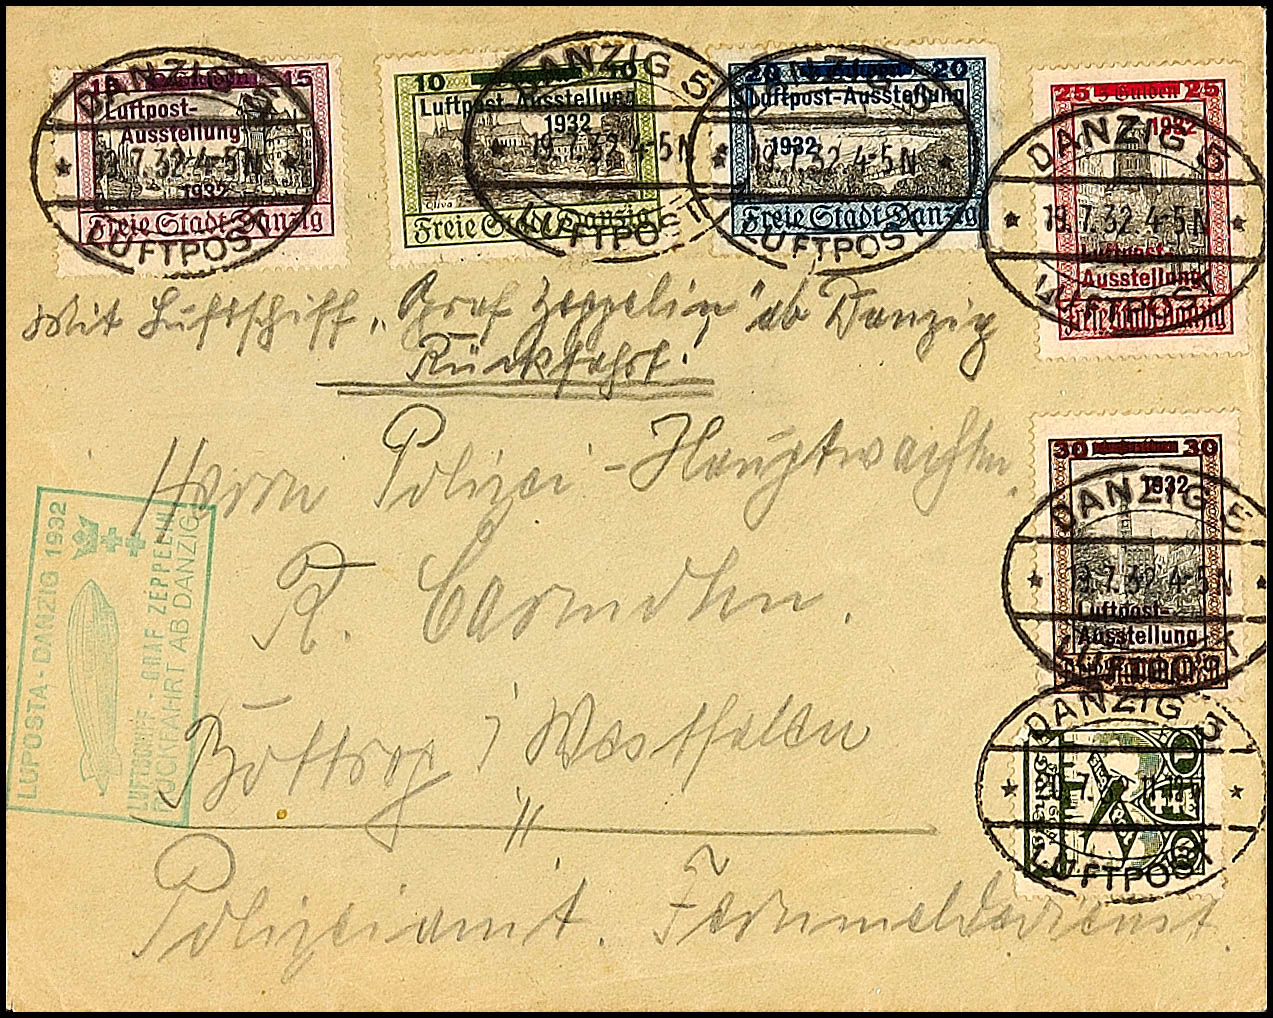 15 15
Luftpost-
Ausstellung
1932
Freie Stadt Danzig
DANZIG 5
19.7.32.4-5N
LUFTPOST
10 10
Luftpost-Ausstellung
1932
Oliva
Freie Stadt Danzig
DANZIG 5
19.7.32.4-5N
LUFTPOST
20 20
Luftpost-Ausstellung
1932
Freie Stadt Danzig
DANZIG
19.7.32.4-5N
LUFTPOST
25 5 Gulden 25
1932
Luftpost-
Ausstellung
Freie Stadt Danzig
DANZIG 5
19.7.32.4-5N
LUFTPOST
Mit Luftschiff „Graf Zeppelin" ab Danzig
Rückfahrt!
Herrn Polizei-Hauptwachtm.
R.
Bottrop i/Westfalen
Polizeiamt. Fernmeldedienst.
LUPOSTA-DANZIG 1932
LUFTSCHIFF-GRAF ZEPPELIN
RÜCKFAHRT AB DANZIG
30 30
1932
Luftpost-
Ausstellung
DANZIG 5
19.7.32.4-5N
LUFTPOST
1
DANZIG 5
LUFTPOST